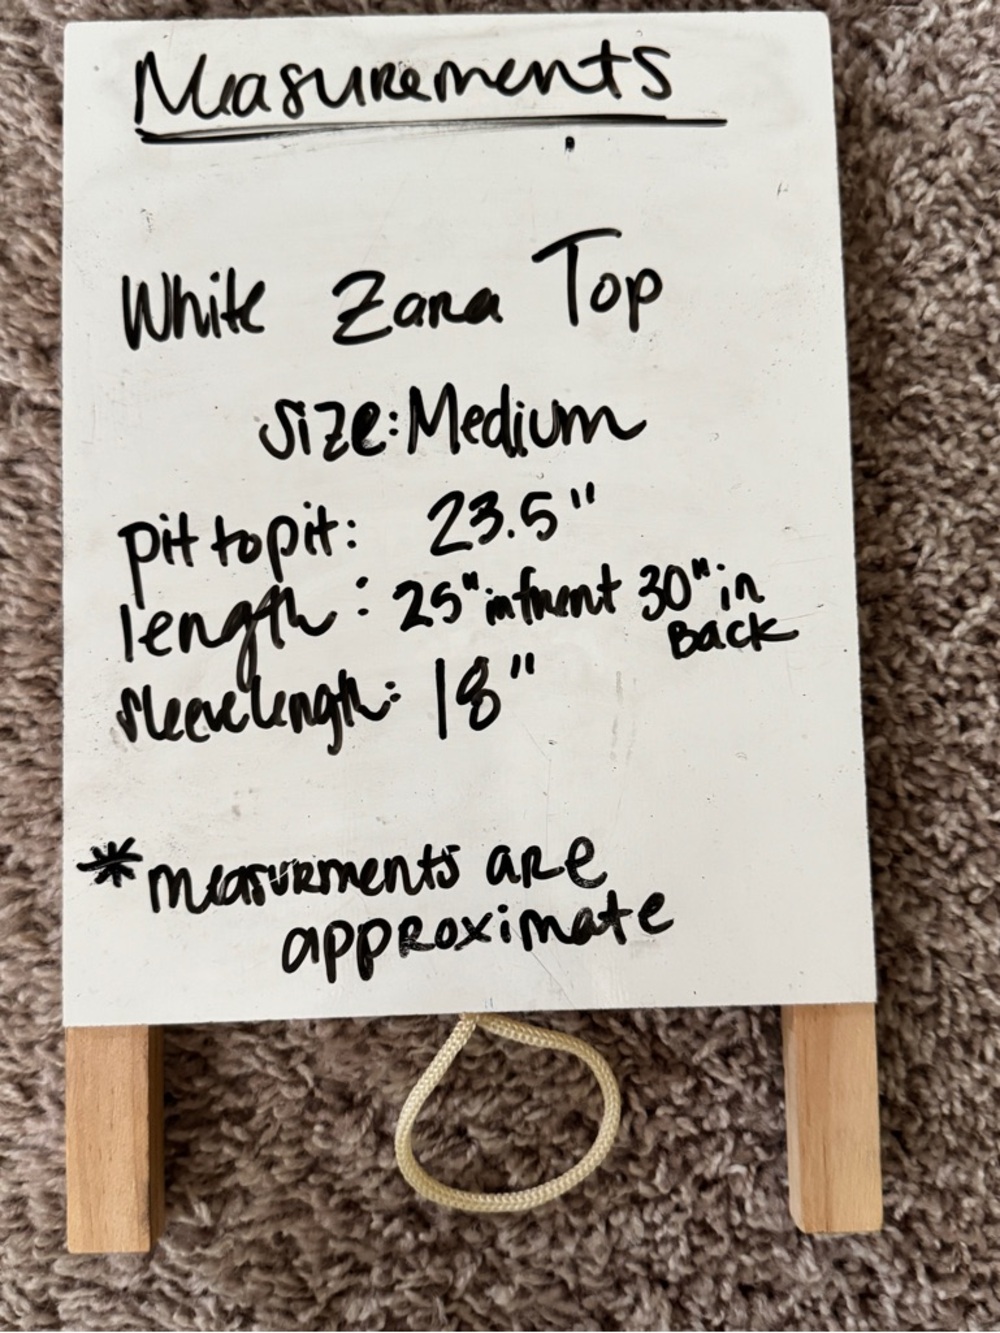 Measurements
White Zara Top
size: Medium
pit to pit: 23.5"
length: 25" in front 30" in
Back
sleeve length: 18"
*measurments are
approximate